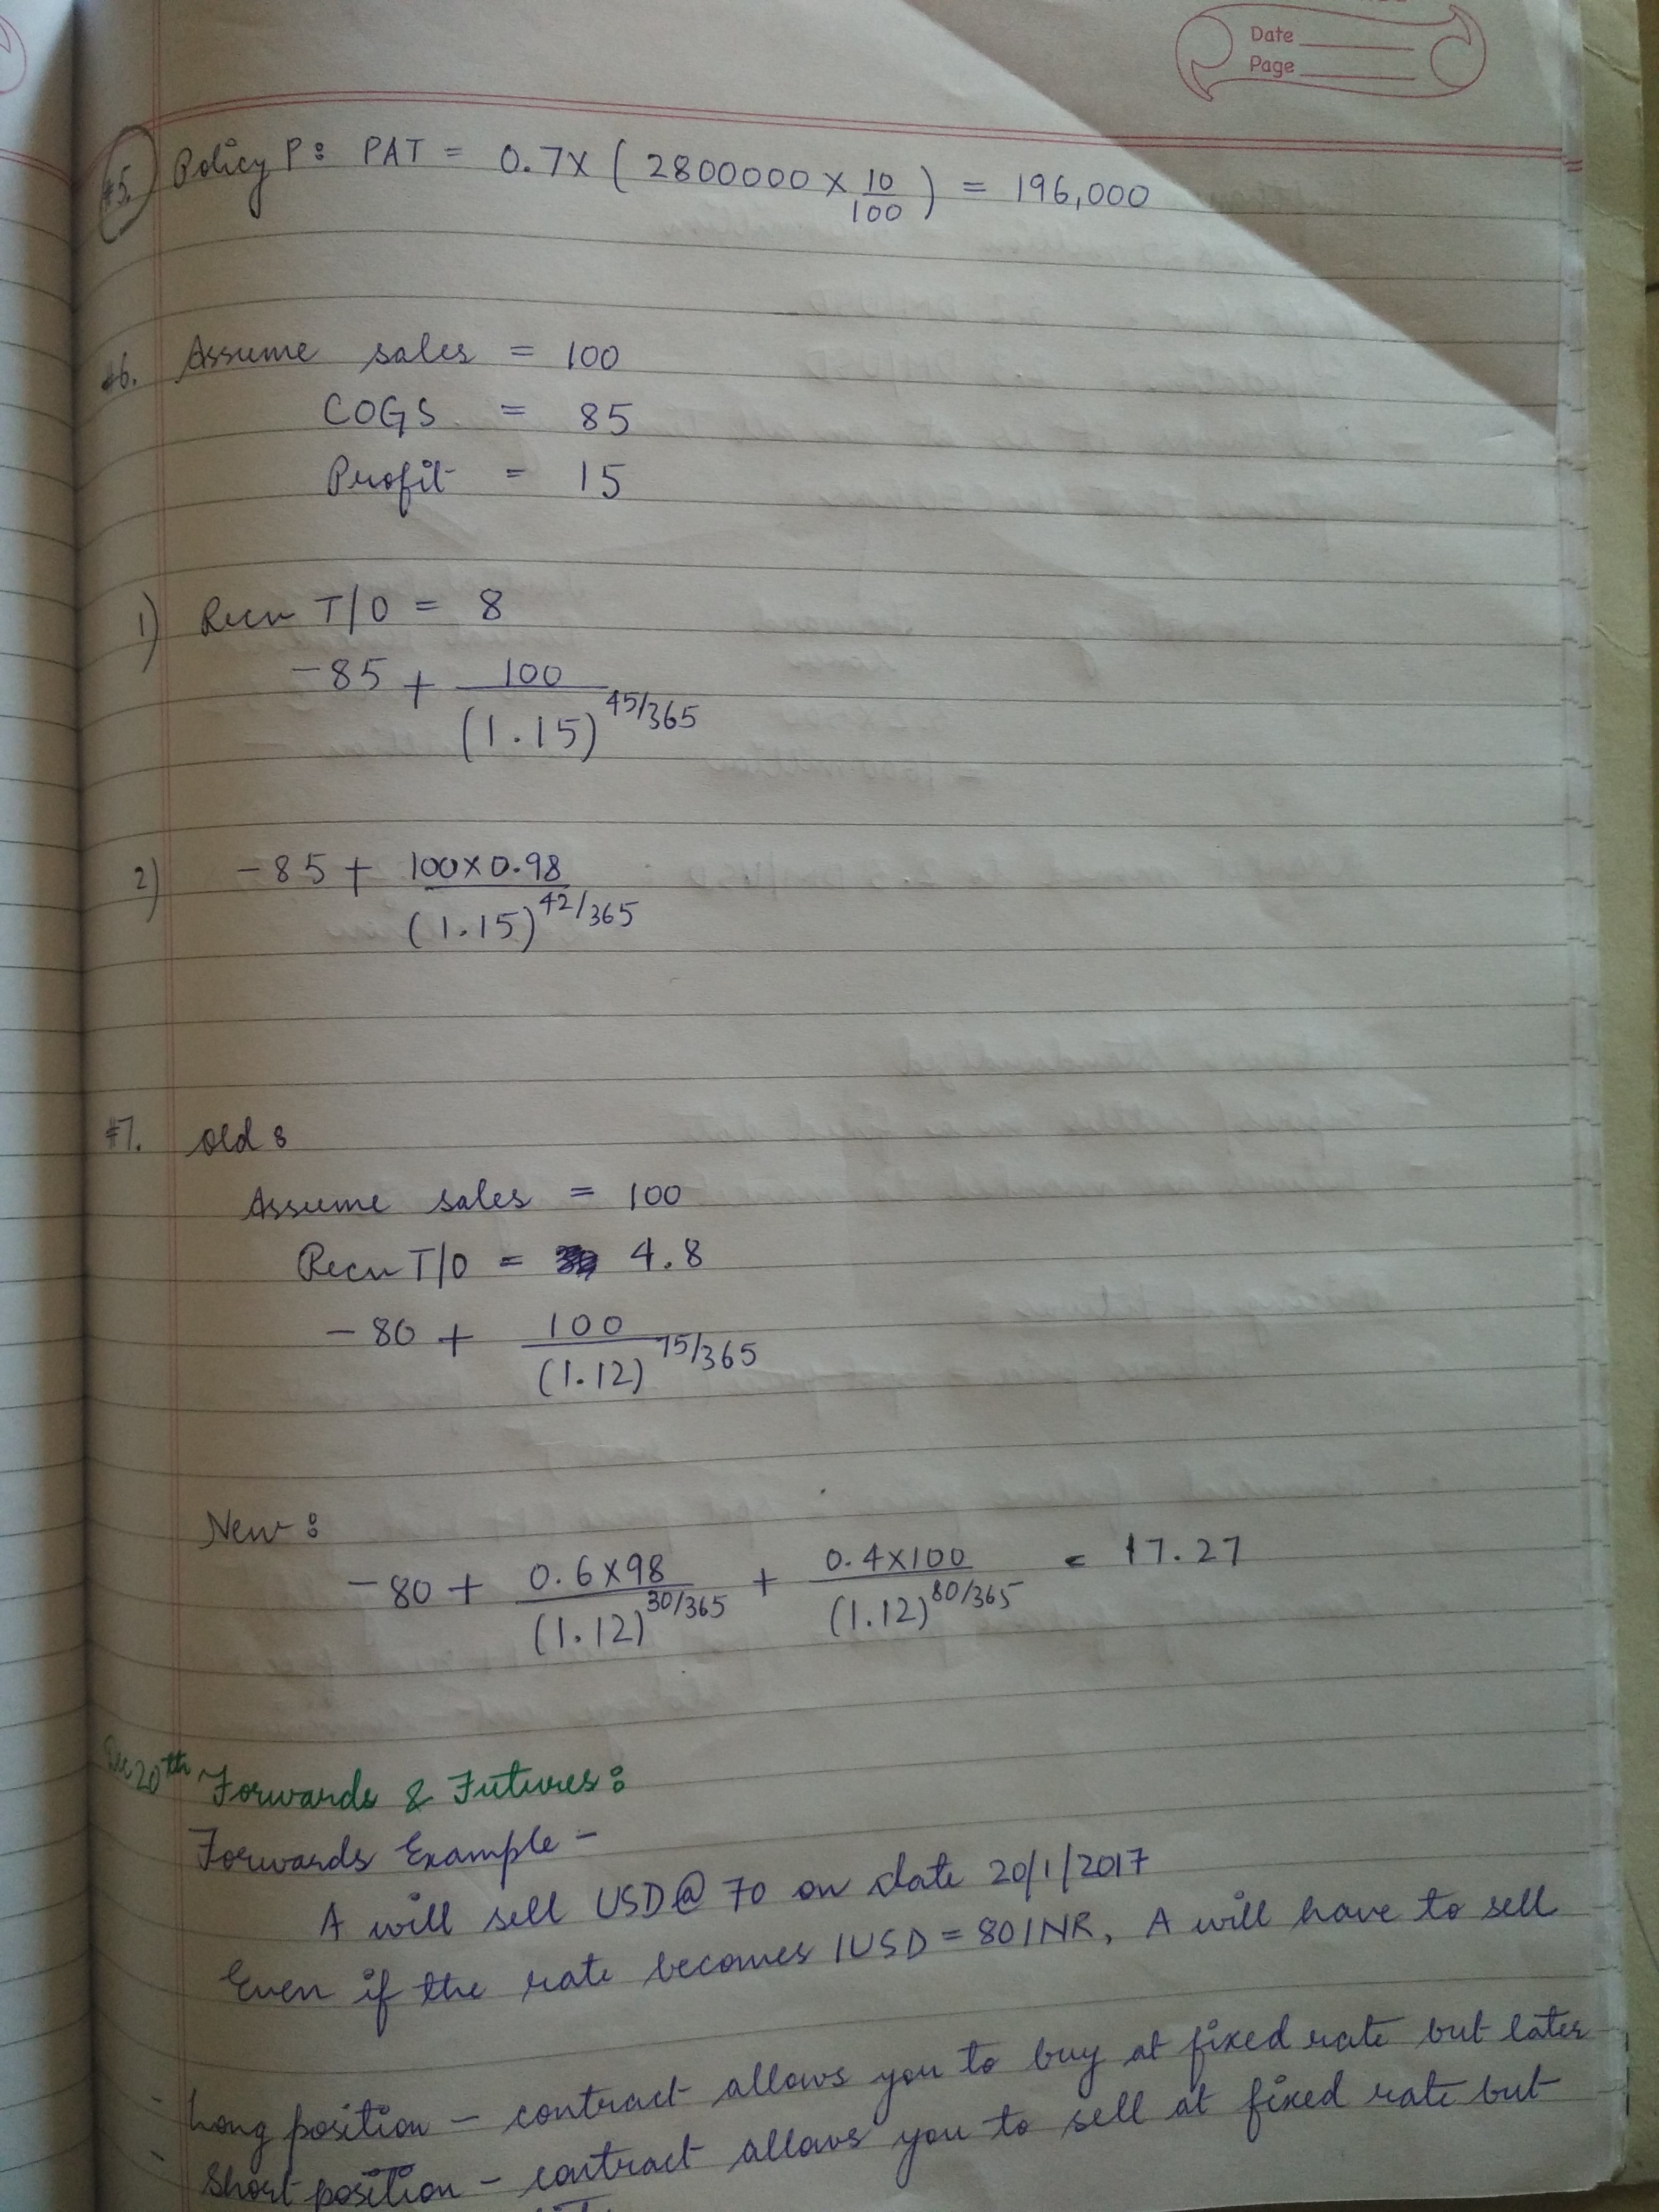 Date
Page
#5. Policy P: PAT = 0.7 x ( 2800000 x 10/100 ) = 196,000
#6. Assume sales = 100
COGS = 85
Profit = 15
1) Recv T/O = 8
-85 + 100/(1.15)^45/365
2) -85 + 100x0.98/(1.15)^42/365
#7. Old:
Assume sales = 100
Recv T/O = 4.8
-80 + 100/(1.12)^75/365
New:
-80 + 0.6x98/(1.12)^30/365 + 0.4x100/(1.12)^80/365 = 17.27
Dec 20th Forwards & Futures:
Forwards Example -
A will sell USD @ 70 on date 20/1/2017
Even if the rate becomes 1USD = 80INR, A will have to sell
- Long position - contract allows you to buy at fixed rate but later
- Short position - contract allows you to sell at fixed rate but